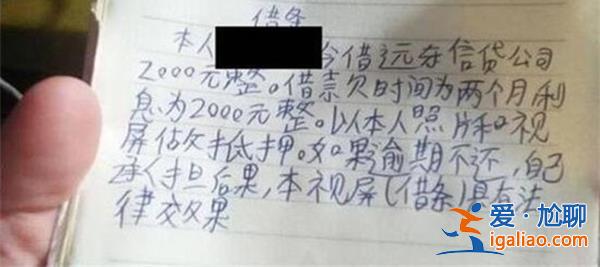 借条
本人 今借远存信贷公司
2000元整。借款欠时间为两个月利
息为2000元整。以本人照片和视
屏做抵押。如果逾期不还，自己
承担后果，本视屏(借条)具有法
律效果
爱·尬聊
igaliao.com